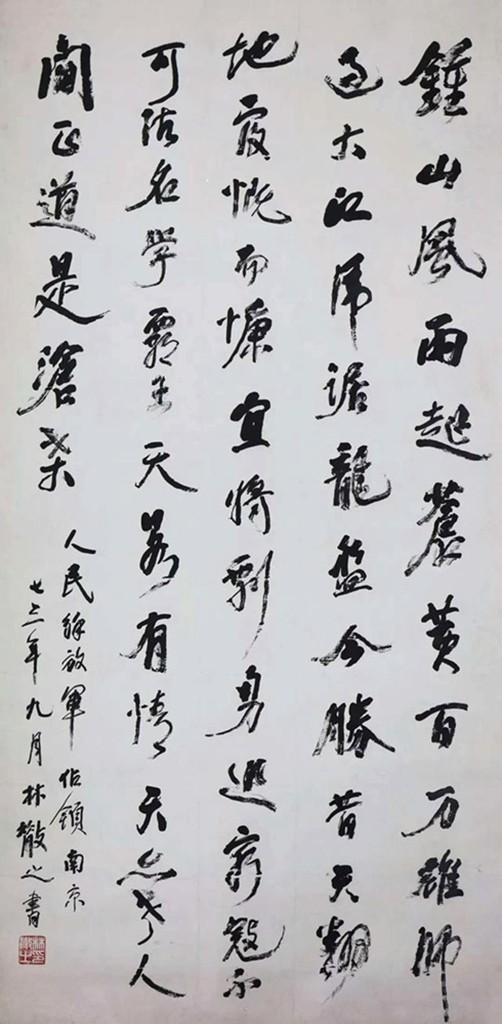 鍾山風雨起蒼黃百万雄師
過大江虎踞龍盤今勝昔天翻
地覆慨而慷宜將剩勇追窮寇不
可沽名學霸王天若有情天亦老人
間正道是滄桑
人民解放軍佔領南京
七三年九月林散之書